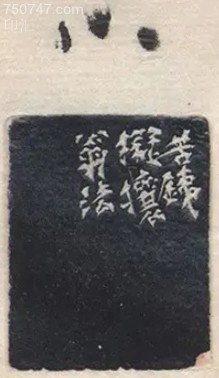 750747.com
苦銕
擬攘
翁法